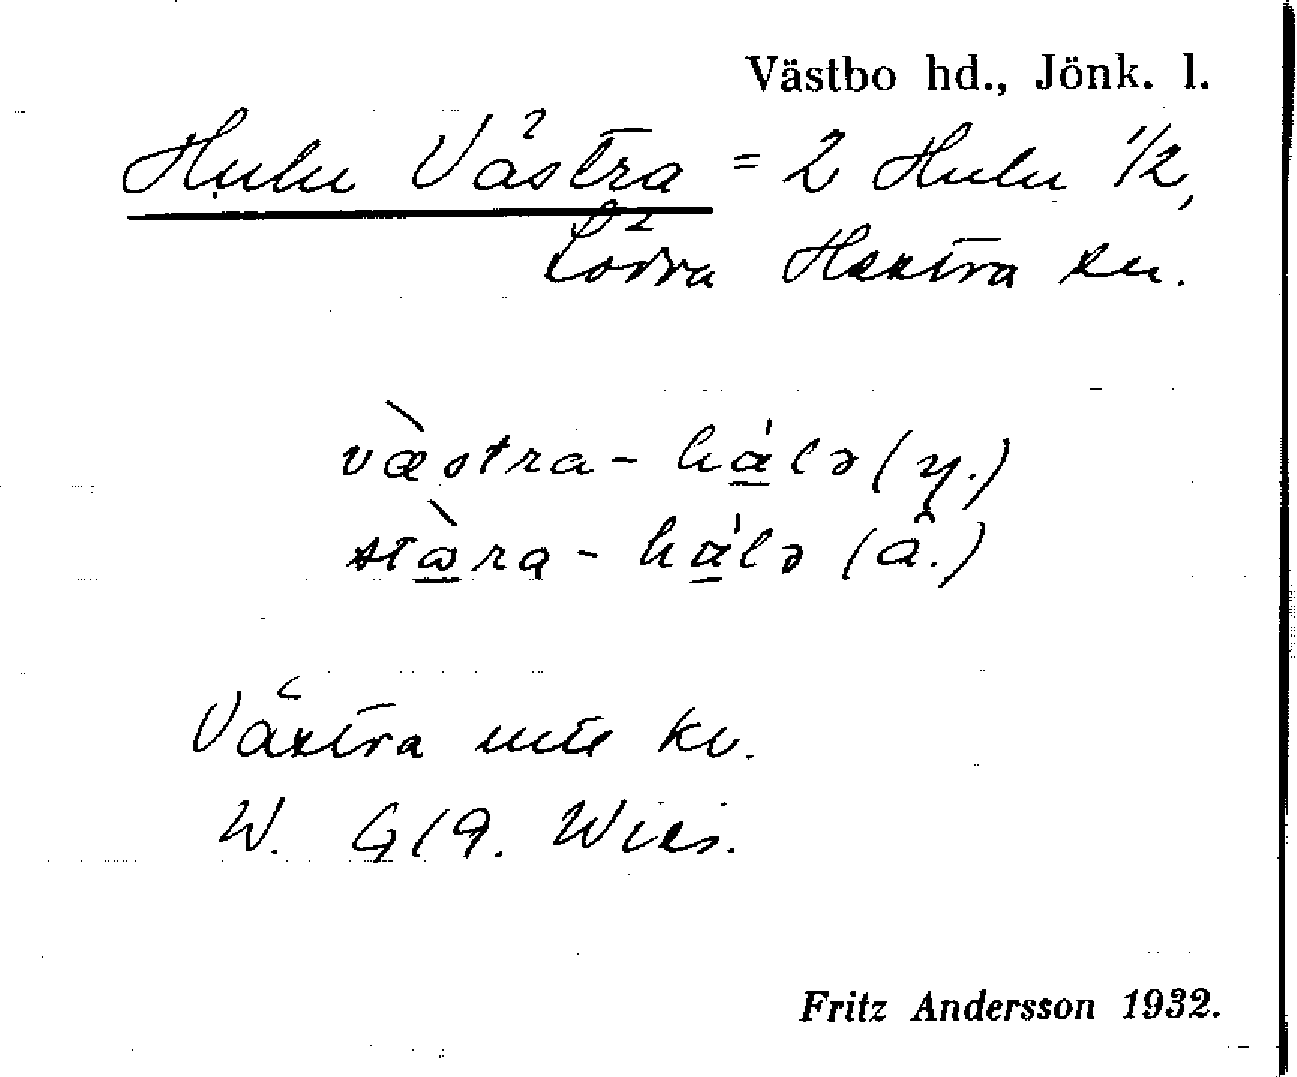 Västbo hd., Jönk. l.
Hulu Västra = 2 Hulu 1/2,
Södra Hestra sn.
væ̀stra - há̱lə (y.)
stὼ̱ra - há̱lə (ä.)
Västra inte kv.
Fritz Andersson 1932.